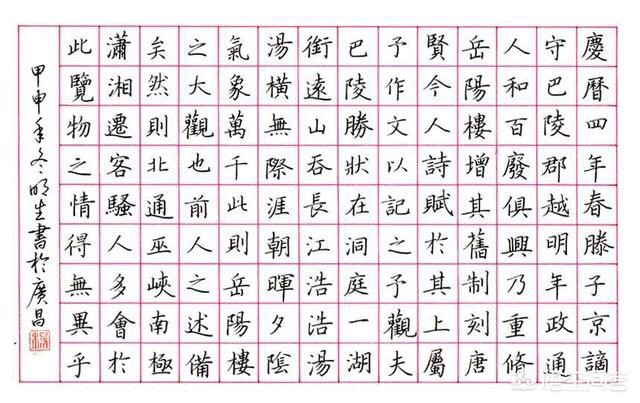 慶曆四年春滕子京謫
守巴陵郡越明年政通
人和百廢俱興乃重修
岳陽樓增其舊制刻唐
賢今人詩賦於其上屬
予作文以記之予觀夫
巴陵勝狀在洞庭一湖
銜遠山吞長江浩浩湯
湯橫無際涯朝暉夕陰
氣象萬千此則岳陽樓
之大觀也前人之述備
矣然則北通巫峽南極
瀟湘遷客騷人多會於
此覽物之情得無異乎
甲申年冬明生書於廣昌